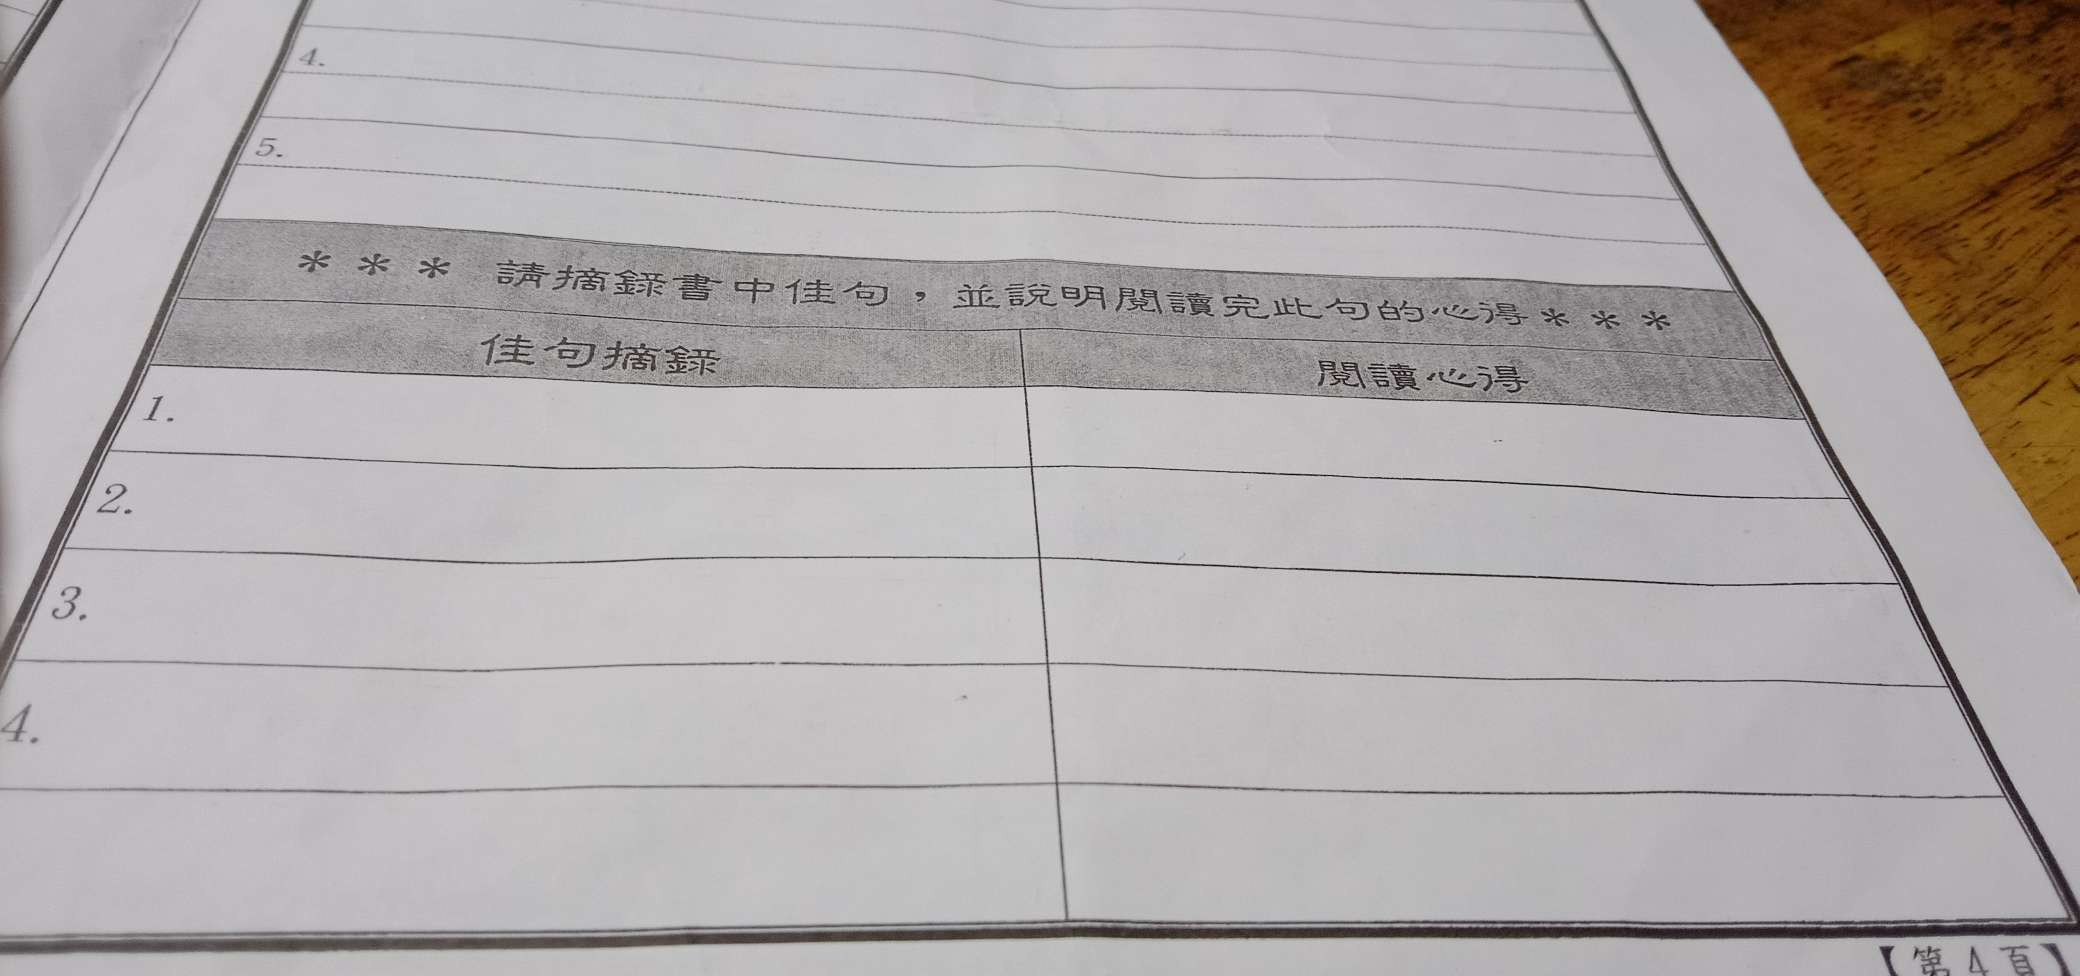 4.
5.
＊＊＊ 請摘錄書中佳句，並說明閱讀完此句的心得＊＊＊
佳句摘錄 閱讀心得
1.
2.
3.
4.
【第4頁】